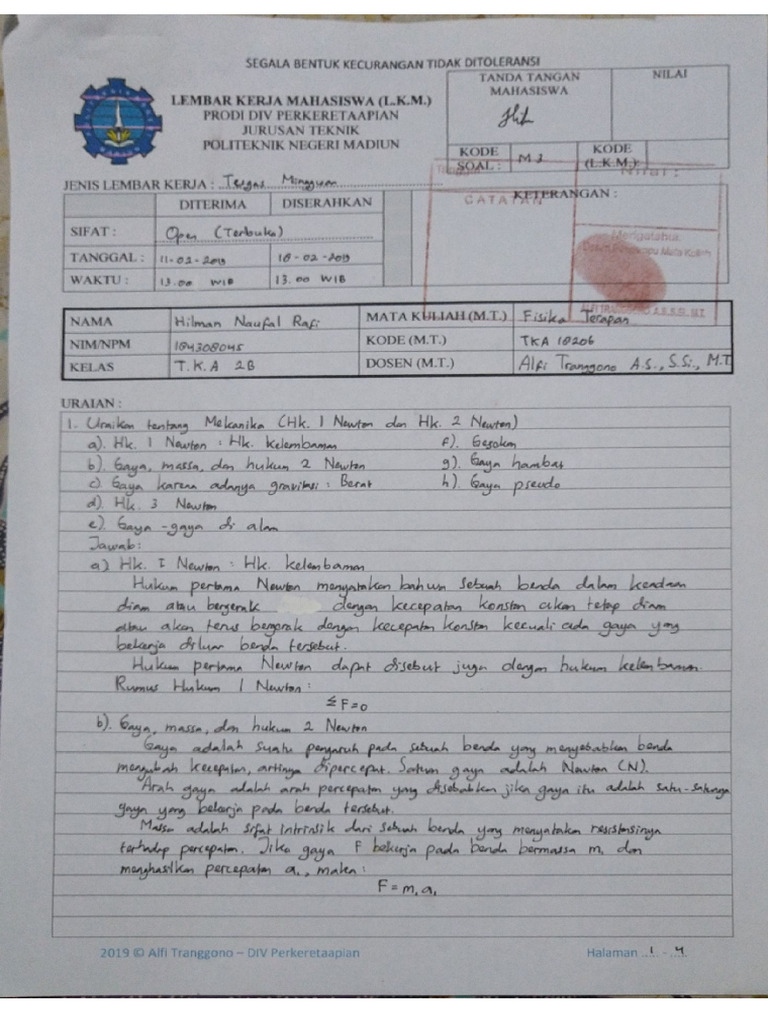 SEGALA BENTUK KECURANGAN TIDAK DITOLERANSI
LEMBAR KERJA MAHASISWA (L.K.M.)
PRODI DIV PERKERETAAPIAN
JURUSAN TEKNIK
POLITEKNIK NEGERI MADIUN
TANDA TANGAN MAHASISWA
NILAI
KODE SOAL : M3
KODE (L.K.M.):
JENIS LEMBAR KERJA : Tugas Mingguan
DITERIMA DISERAHKAN
KETERANGAN :
SIFAT : Open (Terbuka)
TANGGAL : 11-02-2019 18-02-2019
WAKTU : 13.00 WIB 13.00 WIB
CATATAN
Nilai :
Mengetahui,
Dosen Pengampu Mata Kuliah
ALFI TRANGGONO A.S.,S.Si., M.T.
NAMA Hilman Naufal Rafi MATA KULIAH (M.T.) Fisika Terapan
NIM/NPM 184308045 KODE (M.T.) TKA 18206
KELAS T.K.A 2B DOSEN (M.T.) Alfi Tranggono A.S., S.Si., M.T
URAIAN :
1. Uraikan tentang Mekanika (Hk. 1 Newton dan Hk. 2 Newton)
a). Hk. 1 Newton : Hk. kelembaman f). Gesekan
b). Gaya, massa, dan hukum 2 Newton g). Gaya hambat
c). Gaya karena adanya gravitasi : Berat h). Gaya pseudo
d). Hk. 3 Newton
e). Gaya-gaya di alam
Jawab:
a) Hk. I Newton : Hk. kelembaman
Hukum pertama Newton menyatakan bahwa sebuah benda dalam keadaan
diam atau bergerak dengan kecepatan konstan akan tetap diam
atau akan terus bergerak dengan kecepatan konstan kecuali ada gaya yang
bekerja diluar benda tersebut.
Hukum pertama Newton dapat disebut juga dengan hukum kelembaman.
Rumus Hukum 1 Newton :
≤F=0
b). Gaya, massa, dan hukum 2 Newton
Gaya adalah suatu pengaruh pada sebuah benda yang menyebabkan benda
mengubah kecepatan, artinya dipercepat. Satuan gaya adalah Newton (N).
Arah gaya adalah arah percepatan yang disebabkan jika gaya itu adalah satu-satunya
gaya yang bekerja pada benda tersebut.
Massa adalah sifat intrinsik dari sebuah benda yang menyatakan resistansinya
terhadap percepatan. Jika gaya F bekerja pada benda bermassa m, dan
menghasilkan percepatan a₁, maka :
F = m₁a₁
2019 © Alfi Tranggono – DIV Perkeretaapian
Halaman 1 - 4